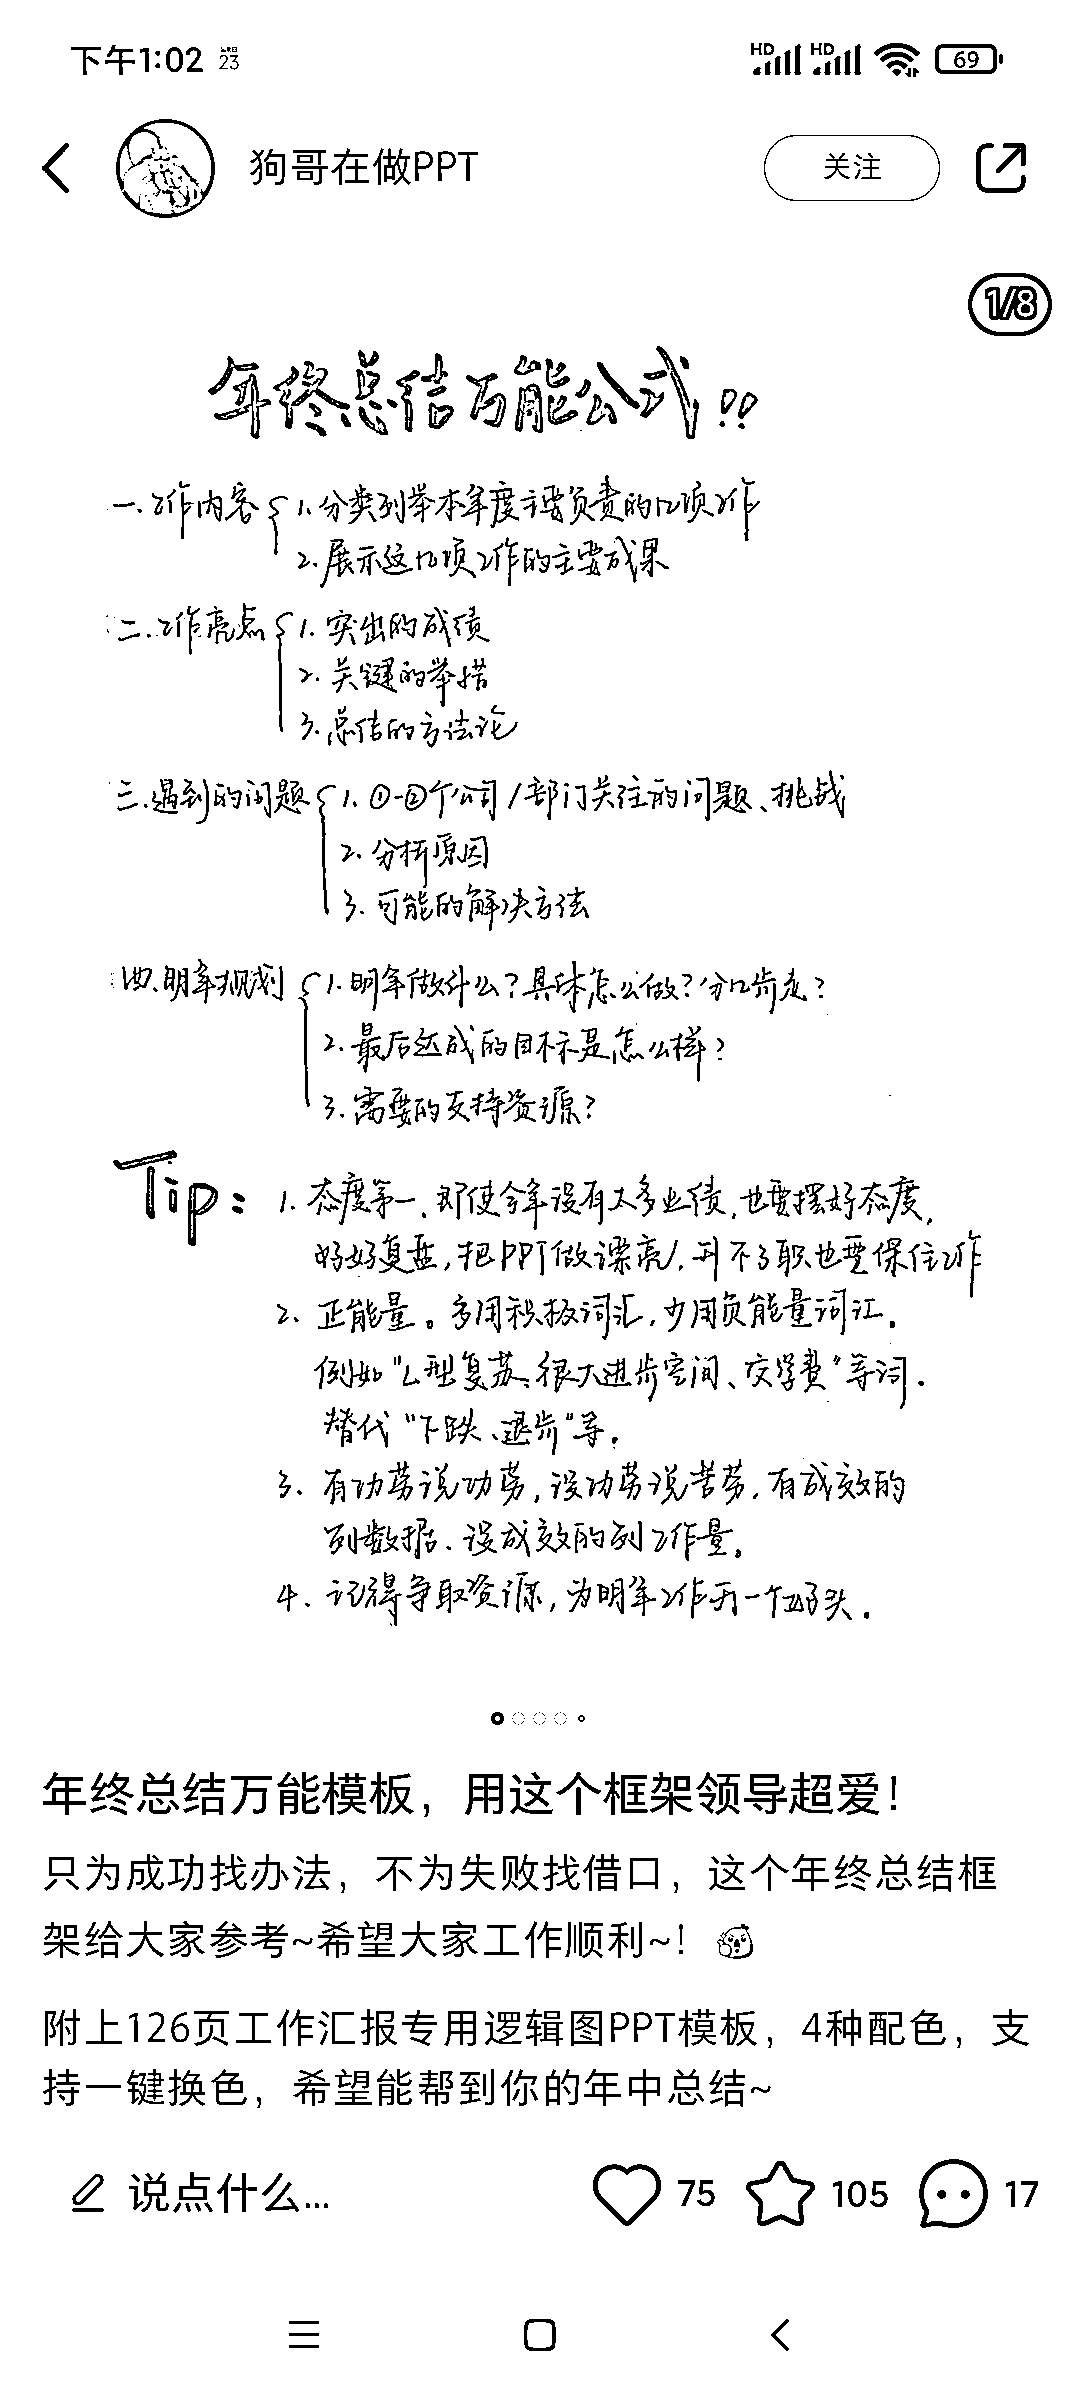 下午1:02 23 HD HD 69
狗哥在做PPT 关注
1/8
年终总结万能公式!!
一.工作内容 1.分类列举本年度主要负责的几项工作
2.展示这几项工作的主要成果
二.工作亮点 1.突出的成绩
2.关键的举措
3.总结的方法论
三.遇到的问题 1.①-②个公司/部门关注的问题、挑战
2.分析原因
3.可能的解决方法
四.明年规划 1.明年做什么?具体怎么做?分几步走?
2.最后达成的目标是怎么样?
3.需要的支持资源?
Tip: 1.态度第一.即使今年没有太多业绩,也要摆好态度,
好好复盘,把PPT做漂亮,升不了职也要保住工作
2.正能量。多用积极词汇,少用负能量词汇.
例如“L型复苏、很大进步空间、交学费”等词.
替代“下跌、退步”等.
3.有功劳说功劳,没功劳说苦劳.有成效的
列数据、没成效的列工作量。
4.记得争取资源,为明年工作开一个好头.
年终总结万能模板，用这个框架领导超爱！
只为成功找办法，不为失败找借口，这个年终总结框
架给大家参考~希望大家工作顺利~！
附上126页工作汇报专用逻辑图PPT模板，4种配色，支
持一键换色，希望能帮到你的年中总结~
说点什么... 75 105 17